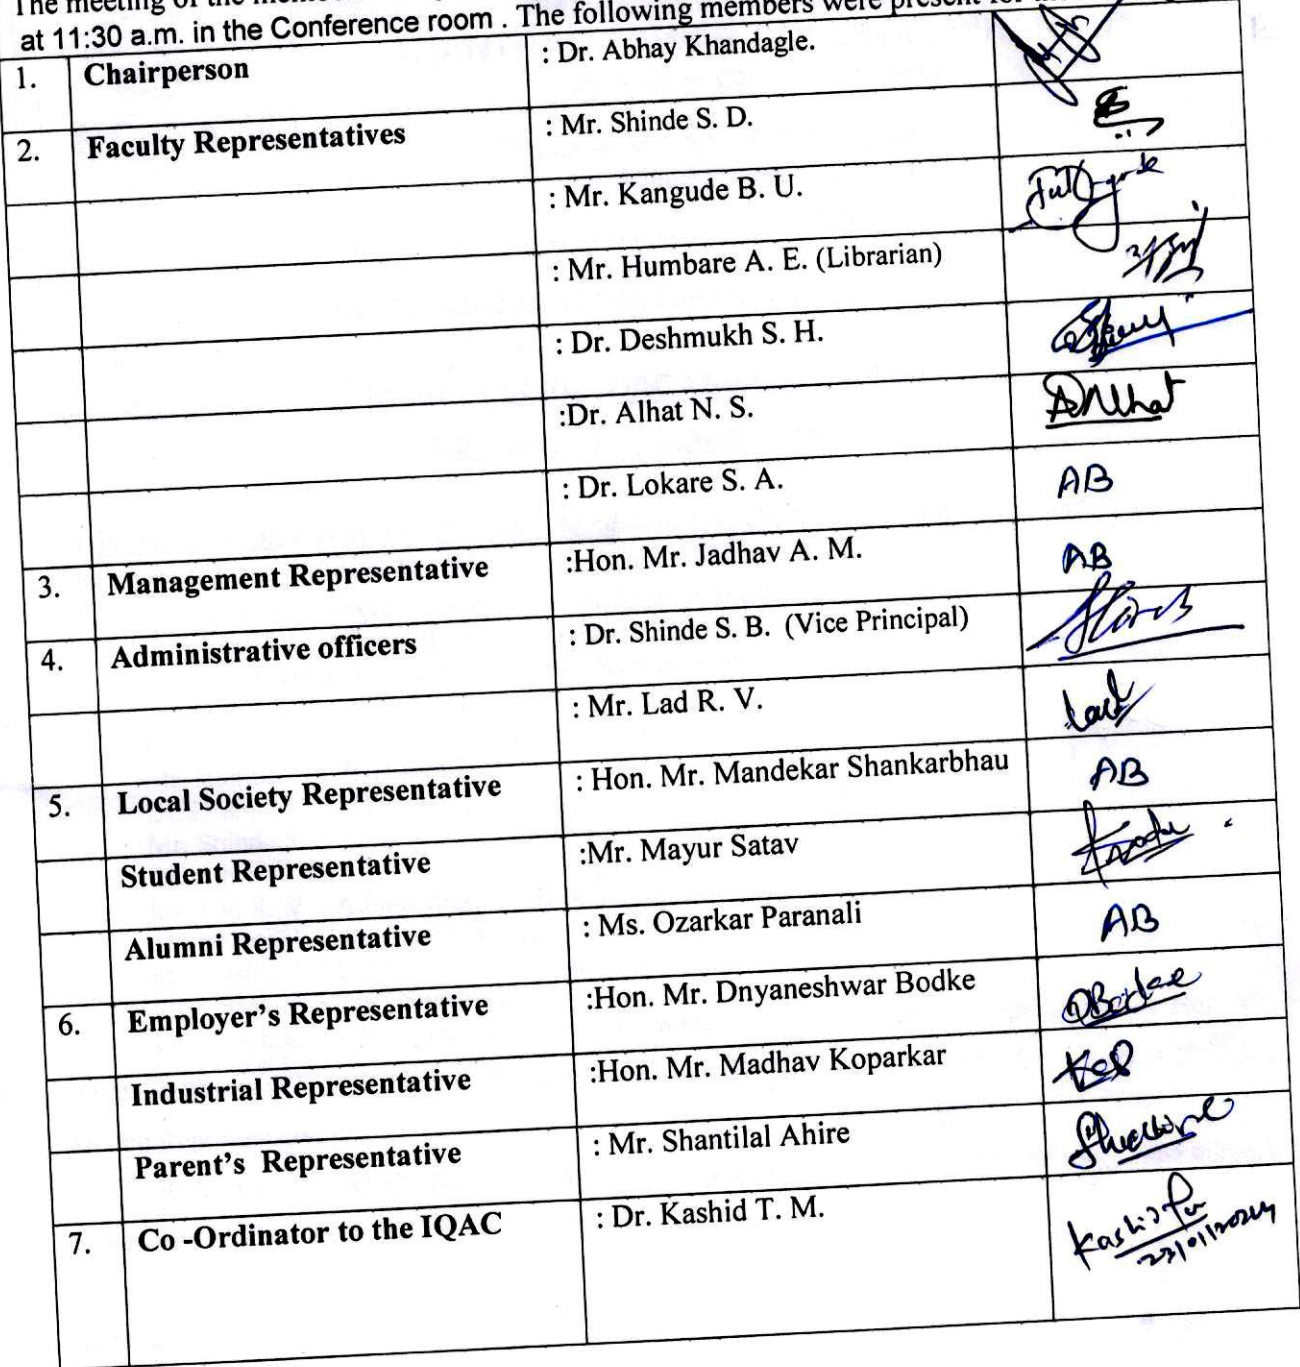 The meeting of the
at 11:30 a.m. in the Conference room . The following members were present for
1. Chairperson : Dr. Abhay Khandagle.
2. Faculty Representatives : Mr. Shinde S. D.
: Mr. Kangude B. U.
: Mr. Humbare A. E. (Librarian)
: Dr. Deshmukh S. H.
:Dr. Alhat N. S. Alhat
: Dr. Lokare S. A. AB
3. Management Representative :Hon. Mr. Jadhav A. M. AB
4. Administrative officers : Dr. Shinde S. B. (Vice Principal)
: Mr. Lad R. V. Lad
5. Local Society Representative : Hon. Mr. Mandekar Shankarbhau AB
Student Representative :Mr. Mayur Satav
Alumni Representative : Ms. Ozarkar Paranali AB
6. Employer's Representative :Hon. Mr. Dnyaneshwar Bodke DBodke
Industrial Representative :Hon. Mr. Madhav Koparkar
Parent's Representative : Mr. Shantilal Ahire
7. Co -Ordinator to the IQAC : Dr. Kashid T. M. Kashid
23/01/2024